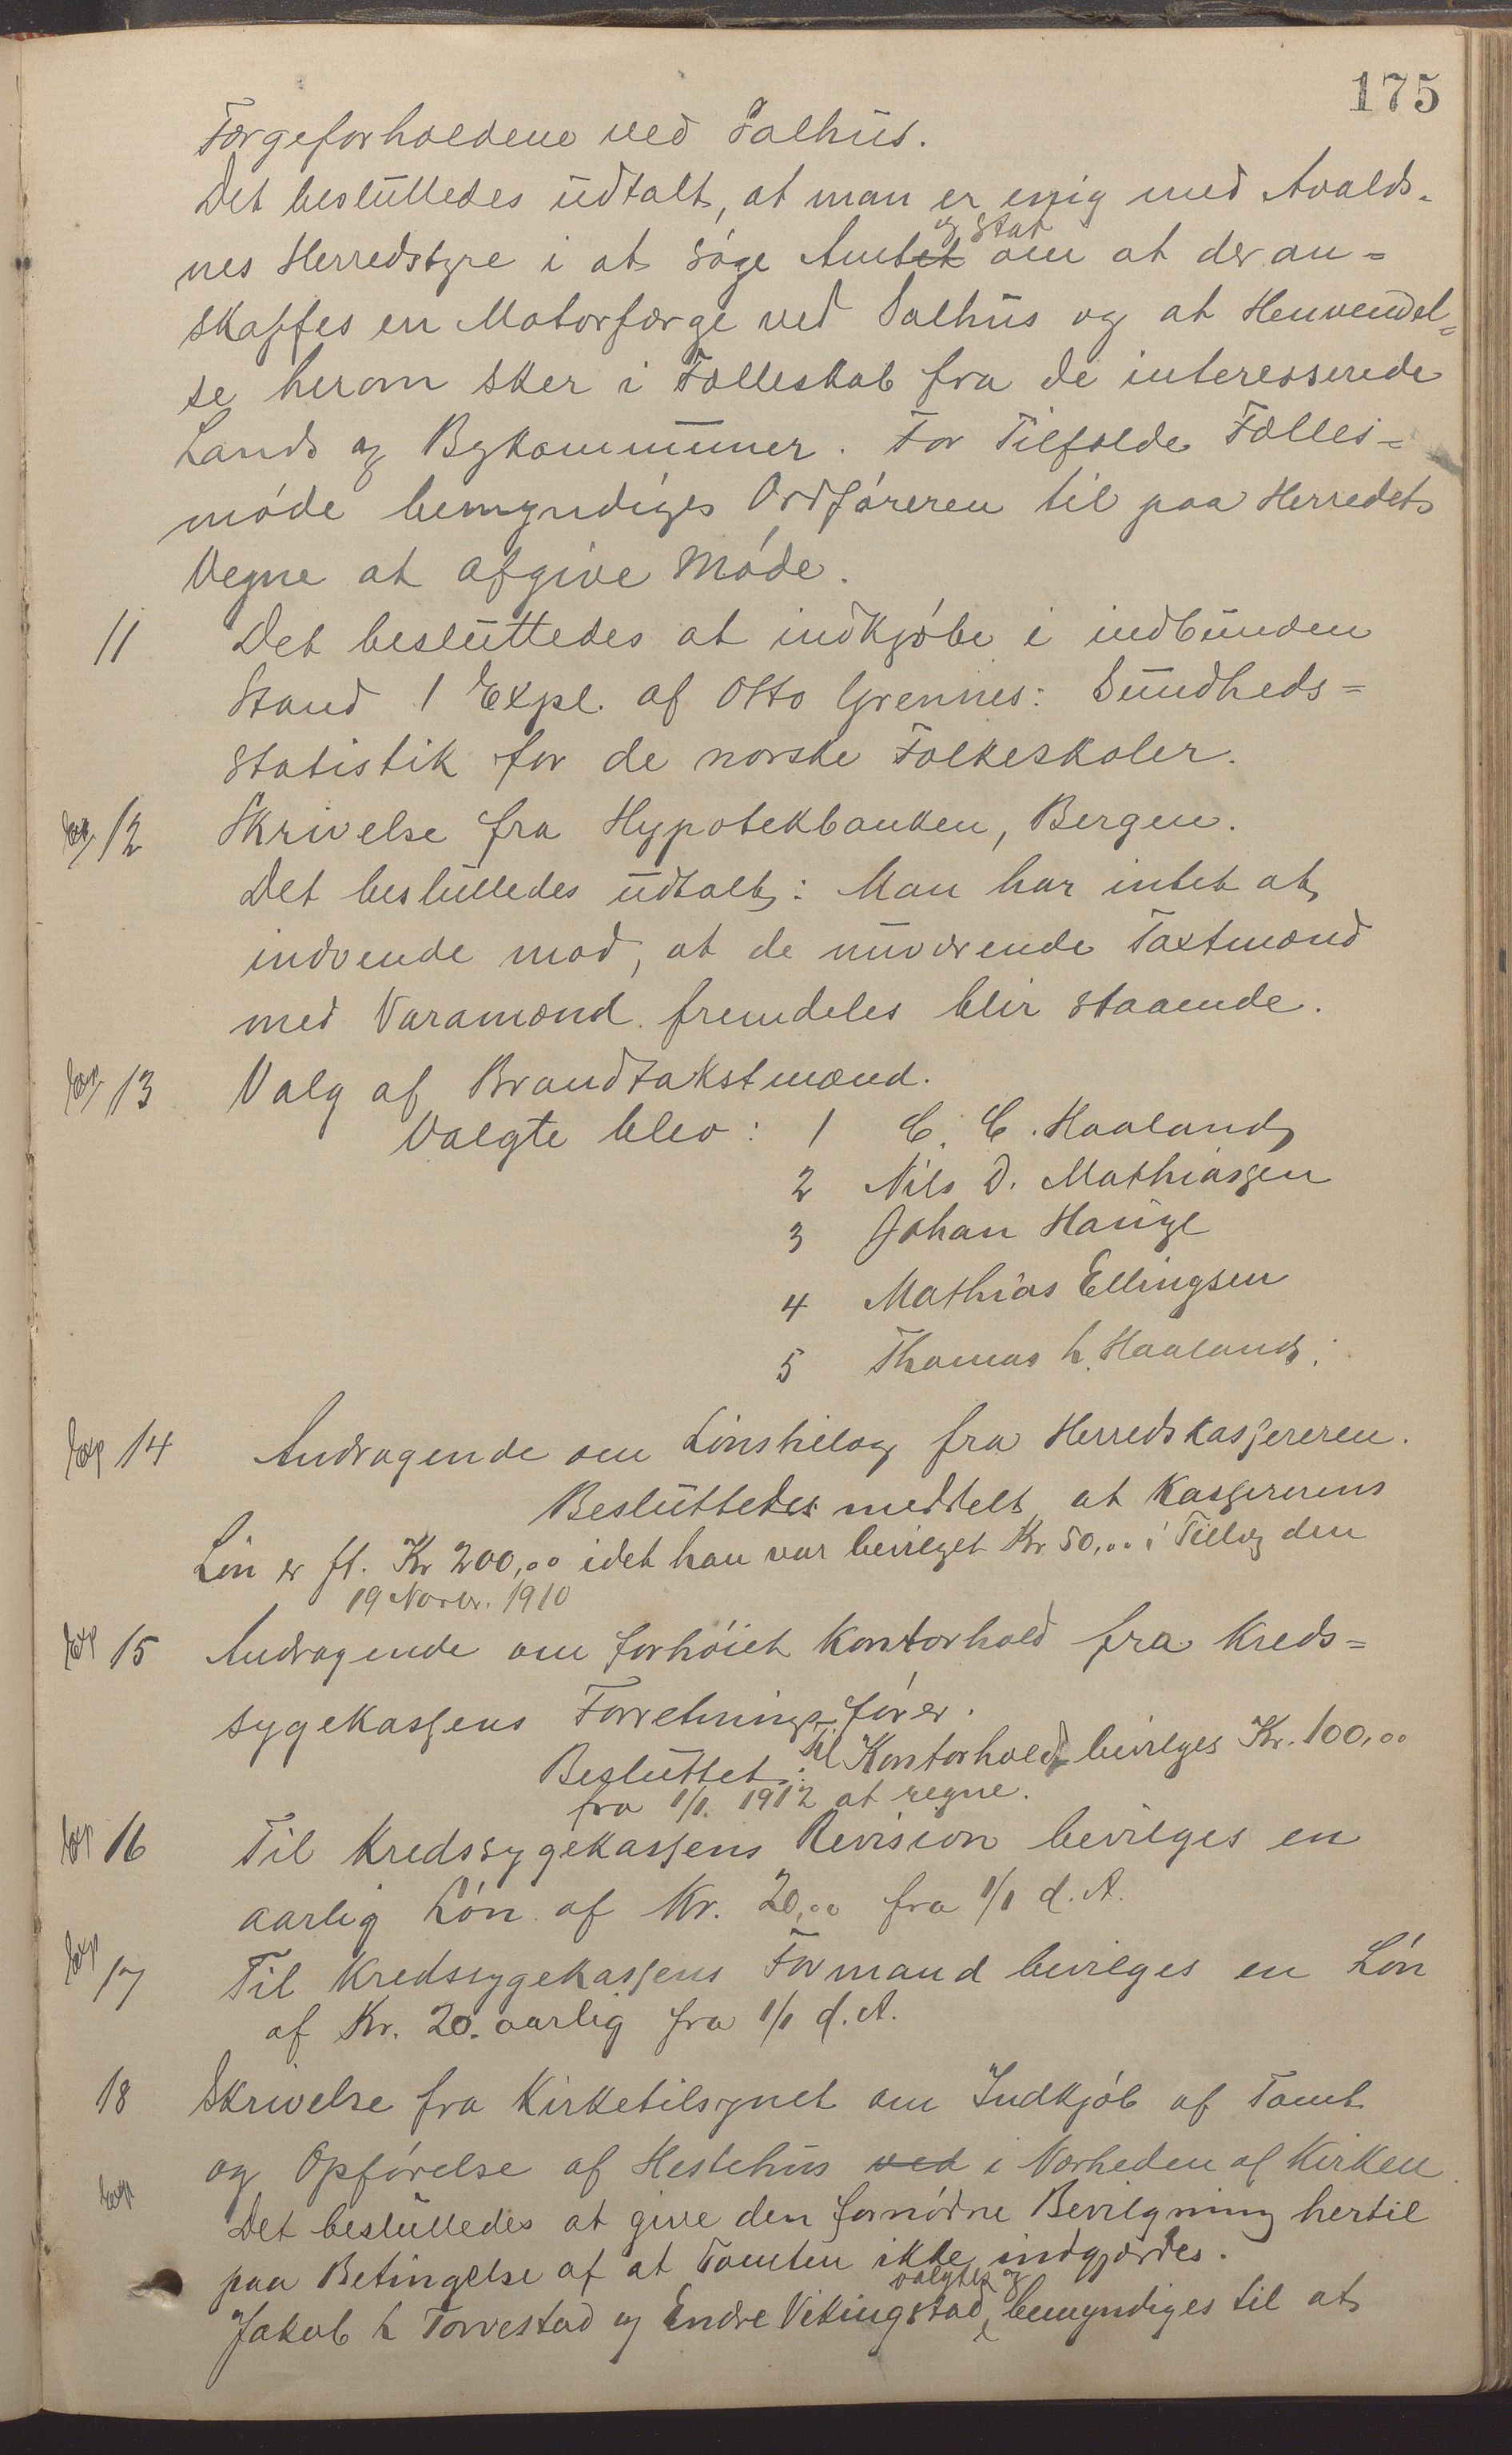 175
Færgeforholdene ved Salhus.
Det besluttedes udtalt, at man er enig med Avalds-
nes Herredstyre i at søge Amtet og Stat om at der an=
skaffes en Motorfærge ved Salhus og at Henvendel=
se herom sker i Fælleskab fra de interesserede
Lands og Bykommuner. For Tilfælde Fælles=
møde bemyndiges Ordføreren til paa Herredets
Vegne at afgive Møde.
11 Det besluttedes at indkjøbe i indbunden
Stand 1 Expl. af Otto Grennes: Sundheds=
statistik for de norske Folkeskoler.
Exp 12 Skrivelse fra Hypotekbanken, Bergen.
Det besluttedes udtalt: Man har intet at
indvende mod, at de nuværende Taxtmænd
med Varamænd fremdeles blir staaende.
Exp 13 Valg af Brandtakstmænd.
Valgte blev: 1 C. C. Haaland
2 Nils D. Mathiassen
3 Johan Hauge
4 Mathias Ellingsen
5 Thomas L. Haaland.
Exp 14 Andragende om Lønstillæg fra Herredskasjereren.
Besluttedes meddelt at Kasjererens
Løn er ft. Kr 200,00 idet han var bevilget Kr 50,00 i Tillæg den
19 Novbr. 1910
Exp 15 Andragende om forhøiet Kontorhold fra Kreds=
sygekassens Forretningsfører.
Besluttet: til Kontorhold bevilges Kr. 100,00
fra 1/1. 1912 at regne.
Exp 16 Til Kredssygekassens Revision bevilges en
aarlig Løn af Kr. 20,00 fra 1/1 d. A.
Exp 17 Til Kredssygekassens Formand bevilges en Løn
af Kr. 20. aarlig fra 1/1 d. A.
18 Skrivelse fra Kirketilsynet om Indkjøb af Tomt
og Opførelse af Hestehus ved i Nærheden af Kirken.
Exp Det besluttedes at give den fornødne Bevilgning hertil
paa Betingelse af at Tomten ikke indgjærdes.
Jakob L Torvestad og Endre Vikingstad valgtes og bemyndiges til at